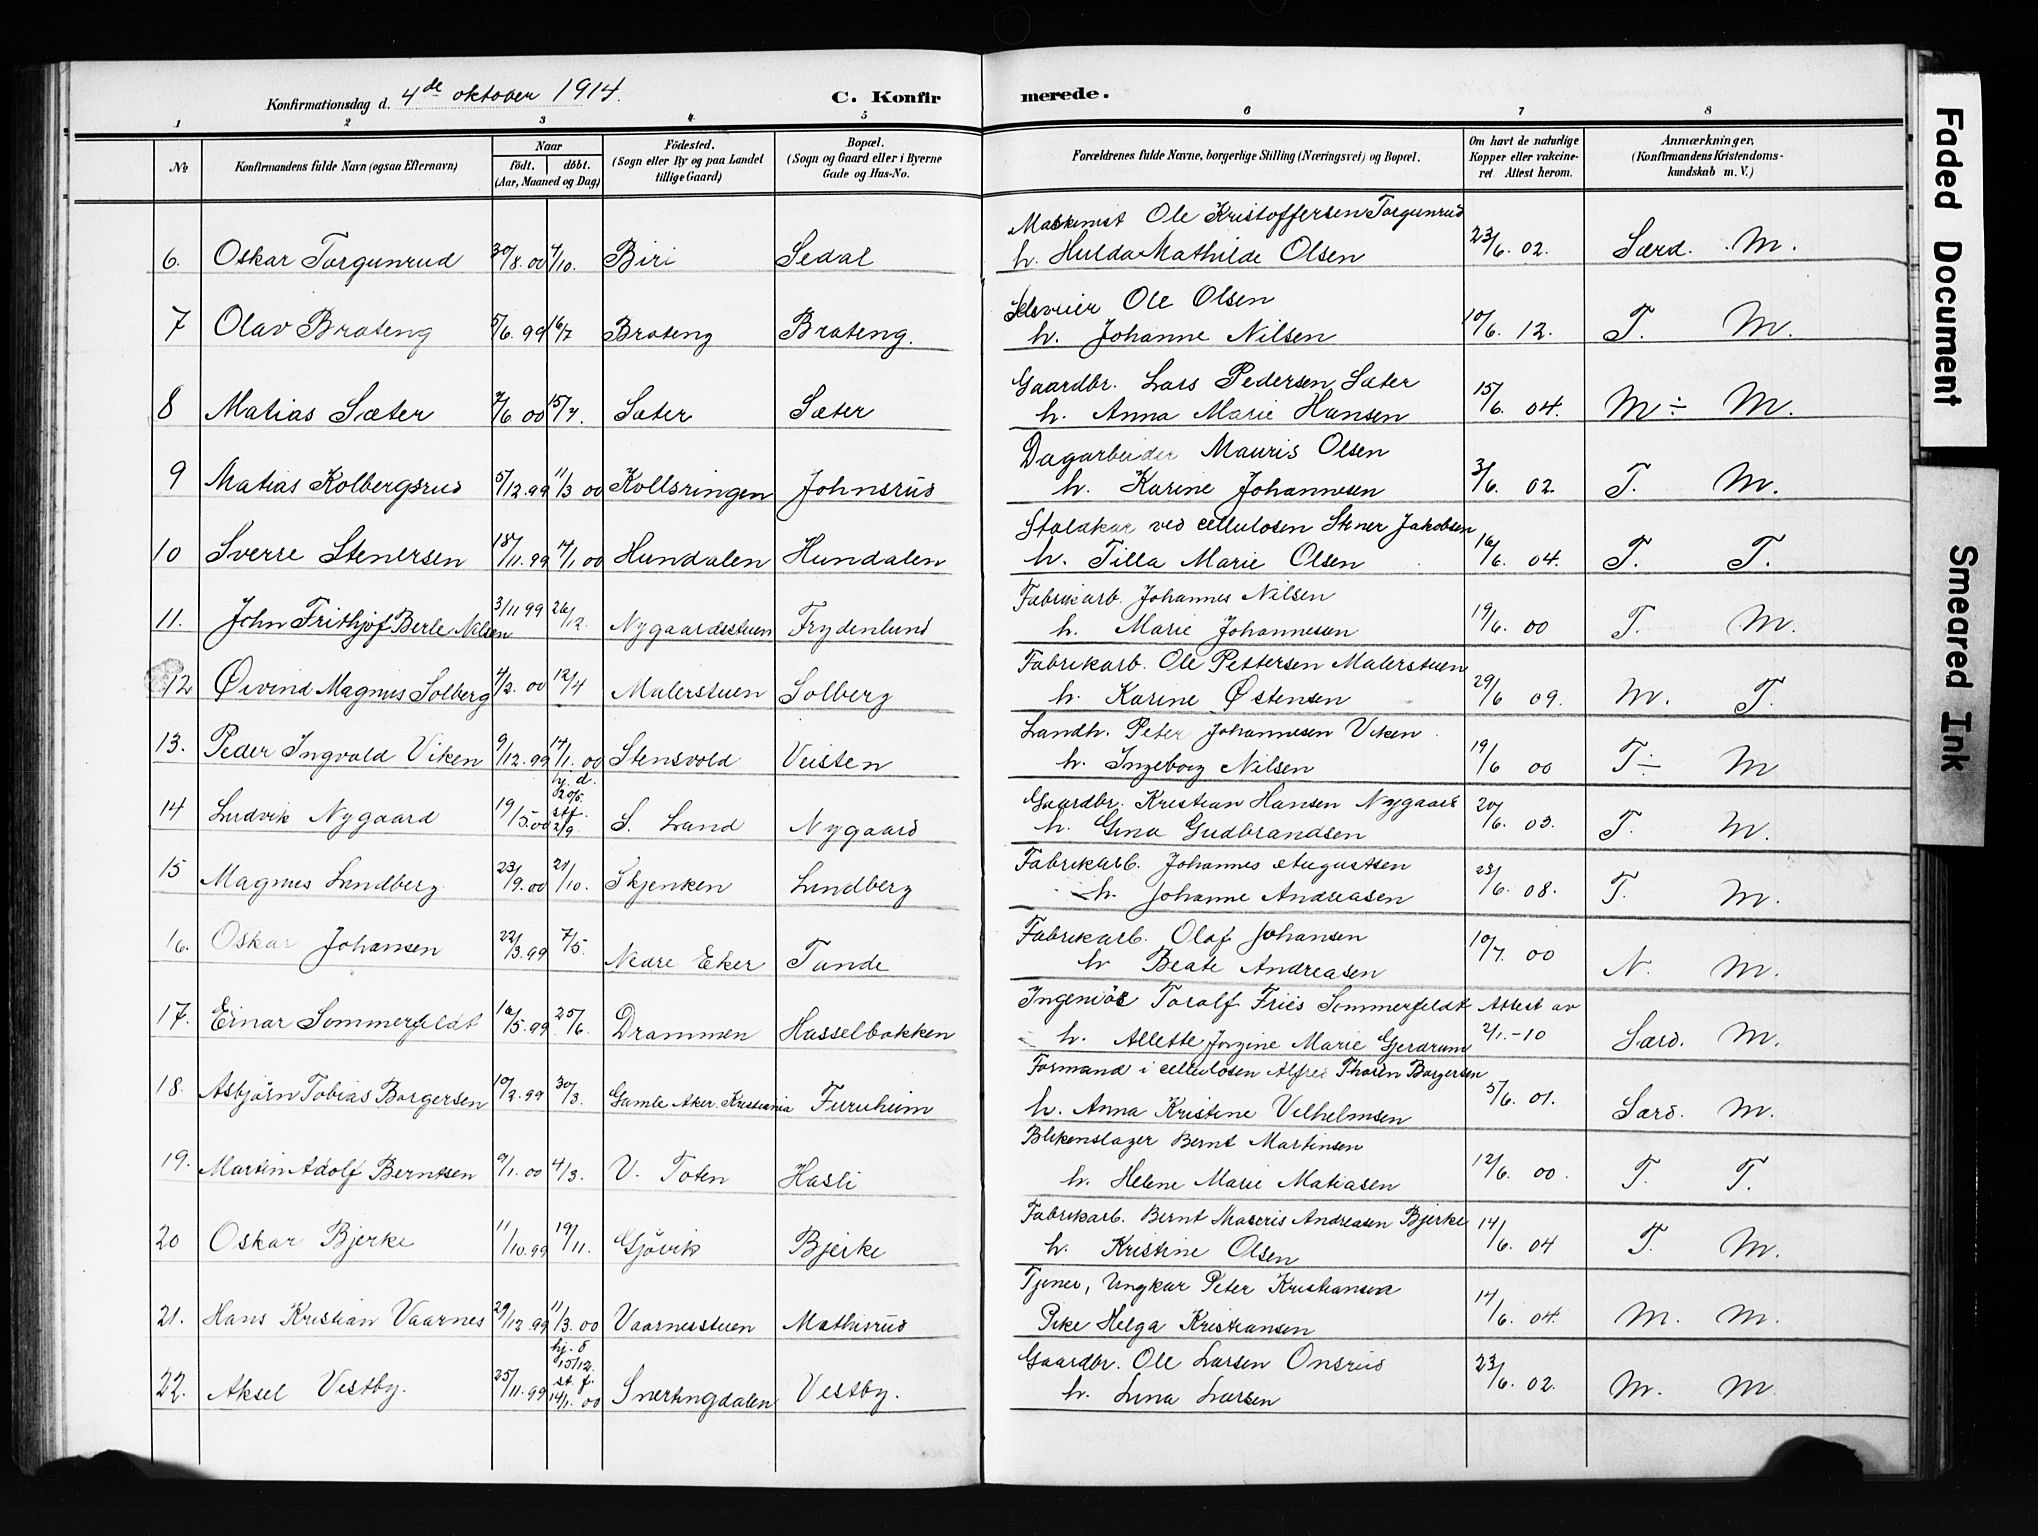 Konfirmationsdag d. 4de oktober 1914. C. Konfirmerede.
1 2 3 4 5 6 7 8
No Konfirmandens fulde Navn (ogsaa Efternavn) Naar født. døbt. (Aar, Maaned og Dag) Födested. (Sogn eller By og paa Landet tillige Gaard) Bopæl. (Sogn og Gaard eller i Byerne Gade og Hus-No. Forældrenes fulde Navne, borgerlige Stilling (Næringsvei) og Bopæl. Om havt de naturlige Kopper eller vakcineret. Attest herom. Anmærkninger, (Konfirmandens Kristendomskundskab m. V.)
6. Oskar Torgunrud 30/8. 00 7/10. Biri Sedal Maskinist Ole Kristoffersen Torgunrud
h. Hulda Mathilde Olsen 23/6. 02. Særd. M.
7 Olav Brateng 5/6. 99 16/7 Brateng Brateng. Selveier Ole Olsen
h. Johanne Nilsen 10/6. 12. T. M.
8 Matias Sæter 7/6 00 15/7. Sæter Sæter Gaardbr. Lars Pedersen Sæter
h. Anna Marie Hansen 15/6. 04. M÷ M.
9 Matias Kolbergsrud 5/12.99 11/3 00 Kollsringen Johnsrud Dagarbeider Mauris Olsen
h. Karine Johannesen 3/6. 02. T. M.
10 Sverre Stenersen 18/11.99 14/1 00 Hundalen Hundalen Staldkar ved cellulosen Stener Jakobsen
h. Tilla Marie Olsen 16/6. 04. T. T.
11. John Frithjof Berle Nilsen 3/11 99 26/12. Nygaardsstuen Frydenlund Fabrikarb. Johannes Nilsen
h. Marie Johannesen 19/6. 00 T. M.
12 Øivind Magnus Solberg 4/2. 00 12/4 Malerstuen Solberg Fabrikarb. Ole Pettersen Malerstuen
h. Karine Østensen 29/6 09. M. T.
13. Peder Ingvald Viken 9/12.99 14/1. 00 Stensvold Veisten Landh. Peter Johannesen Viken
h. Ingeborg Nilsen 19/6 00 T÷ M
14 Ludvik Nygaard 19/5.00 hj. d. 20/5. stf. 2/9. S. Land Nygaard Gaardbr. Kristian Hansen Nygaard
h. Gina Gudbrandsen 20/6. 03. T. M.
15 Magnus Lundberg 23/9.00 21/10. Skjenken Lundberg Fabrikarb. Johannes Augustsen
h. Johanne Andreasen 23/6. 08. T. M.
16. Oskar Johansen 22/3.99 7/5. Nedre Eker Tande Fabrikarb. Olaf Johansen
h. Beate Andreasen 10/7. 00 N. M.
17. Einar Sommerfeldt 16/5.99 25/6. Drammen Hasselbakken Ingeniør Toralf Friis Sommerfeldt
h. Allette Jorgine Marie Gjerdrum Attest av 2/1.-10 Særd. M.
18. Asbjørn Tobias Borgersen 10/2.99 30/3. Gamle Aker. Kristiania Furuheim Formand i cellulosen Alfred Thorén Borgersen
h. Anna Kristine Vilhelmsen 5/6. 01. Særd. M.
19. Martin Adolf Berntsen 9/1.00 4/3. V. Toten Hasli Blikenslager Bernt Martinsen
h. Helene Marie Matiasen 12/6. 00. T. T.
20 Oskar Bjerke 11/10.99 19/11. Gjøvik Bjerke Fabrikarb. Bernt Mauris Andreasen Bjerke
h. Kristine Olsen 14/6. 04 T. M.
21. Hans Kristian Vaarnes 29/12.99 11/3.00 Vaarnesstuen Mathisrud Tjener, Ungkar Peter Kristiansen
Pike Helga Kristiansen 14/6. 04. M. M.
22. Aksel Vestby. 25/11.99 hj. d 15/12. st. f. 14/1. 00 Snertingdalen Vestby. Gaardbr. Ole Larsen Onsrud
h. Lina Larsen 23/6. 02. M. M.
Faded Document
Smeared Ink